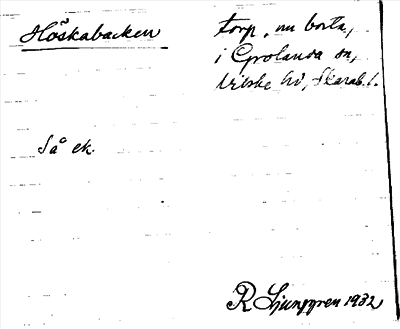 Höskabacken
torp, nu borta,
i Grolanda sn,
Vilske hd, Skarab. l.
Så ek.
R Ljunggren 1932